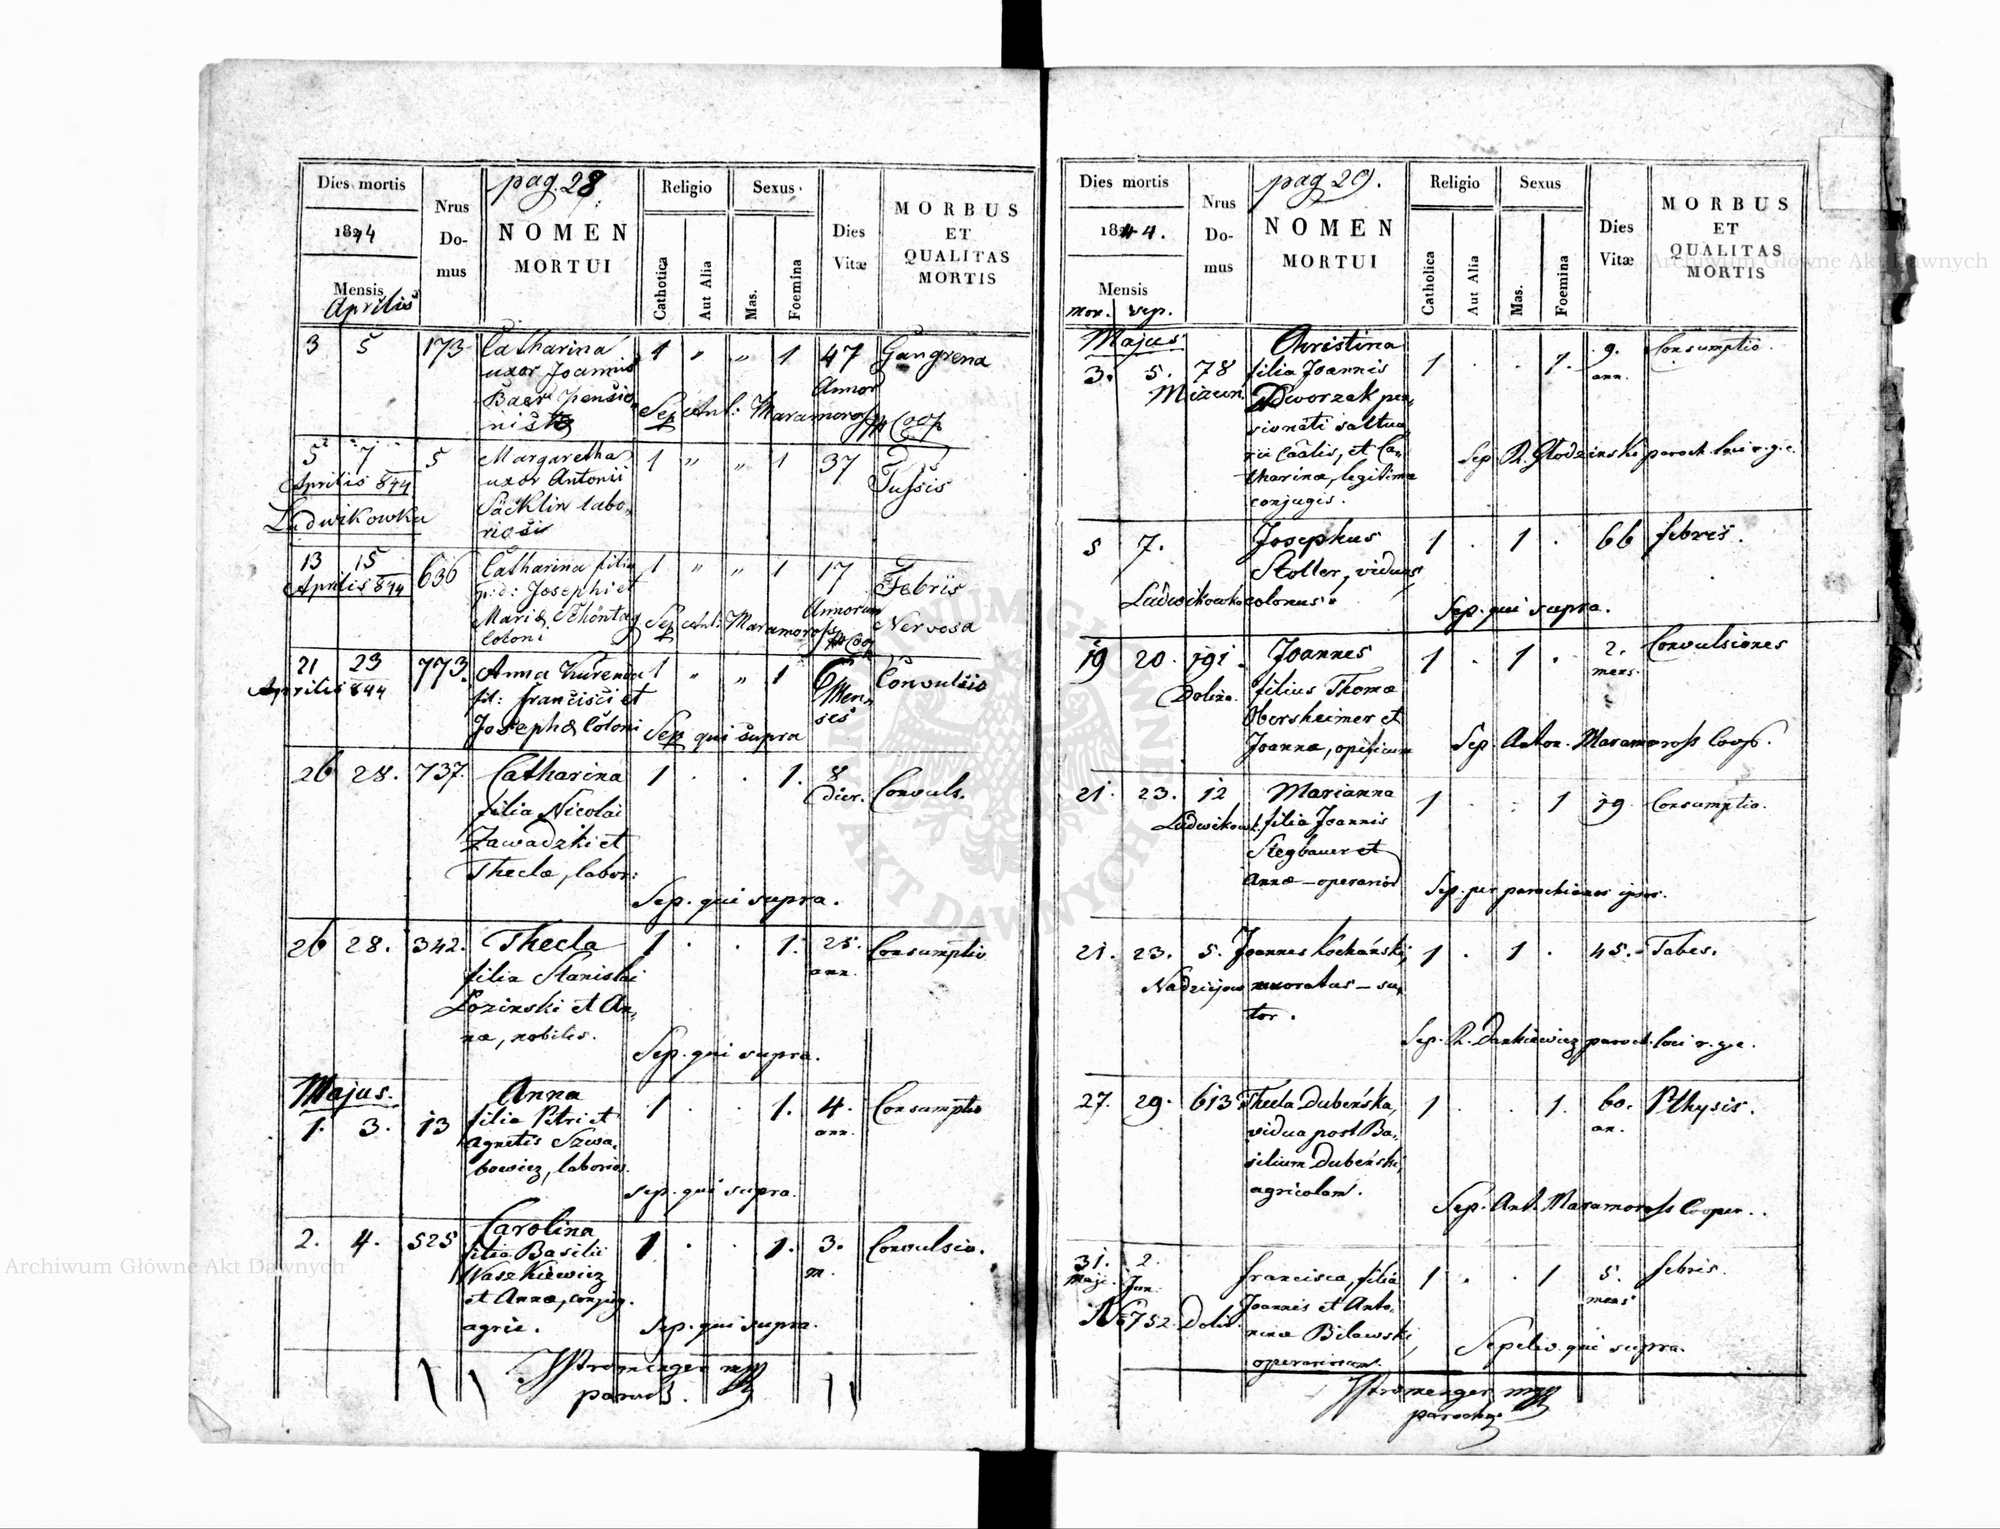 pag. 28.
Dies mortis
Nrus Do- mus
NOMEN MORTUI
Religio
Sexus
Dies Vitæ
MORBUS ET QUALITAS MORTIS
1844
Mensis
Aprilis
Catholica
Aut Alia
Mas.
Foemina
3 5 173 Catharina 1 " " 1 47 Gangrena
uxor Joannis
Annor
Baer pensio-
Sep Ant: Maramoross Coop
5 7 5 Margaretha 1 " " 1 37 Tussis
Aprilis 844
uxor Antonii
Ludwikowka
Säcklin labo-
riosi
13 15 636 Catharina filia 1 " " 1 17 Febris
Aprilis 844
p: d: Josephi et
Annorum
Nervosa
Mariæ Schöntag
Sep Ant: Maramoross Coop
Coloni
21 23 773. Anna Kurenda 1 " " 1 6 Convulsio
Aprilis 844
fil: Francisci et
Menses
Josephæ Coloni
Sep qui supra
26 28. 737. Catharina 1 . . 1. 8 Convuls.
dier.
filia Nicolai
Zawadzki et
Theclæ, labor:
Sep. qui supra.
26 28. 342. Thecla 1 . . 1. 25. Consumptio
ann.
filia Stanislai
Lozinski et An-
næ, nobilis.
Sep. qui supra.
Majus.
1. 3. 13 Anna 1 . . 1. 4. Consumptio
ann.
filia Petri et
Agnetis Szwa-
bowicz, laborios.
Sep. qui supra.
2. 4. 525 Carolina 1 . . 1. 3. Convulsio.
m.
filia Basilii
Waszkiewicz
et Annæ, conjug.
agric.
Sep. qui supra.
JStromenger mpp
paroch.
pag 29.
Dies mortis
Nrus Do- mus
NOMEN MORTUI
Religio
Sexus
Dies Vitæ
MORBUS ET QUALITAS MORTIS
1844.
Mensis
mor. sep.
Catholica
Aut Alia
Mas.
Foemina
Majus
3. 5. 78 Christina 1 . . 1. 9. Consumptio.
ann.
Mizun
filia Joannis
Dworzak pen-
sionati saltua-
rii Caälis, et Ca-
tharinæ, legitimæ
conjugis.
Sep. R. Głodzinski paroch. loci r. g. c.
5 7. Josephus 1 . 1 . 66 febris.
Stoller, viduus
Ludwikowka colonus.
Sep. qui supra.
19 20. 191. Joannes 1 . 1 . 2. Convulsiones
mens.
Dolina.
filius Thomæ
Obersheimer et
Joannæ, opificum
Sep. Anton. Maramoross Coop.
21. 23. 12 Marianna 1 . . 1 19 Consumptio.
Ludwikowk.
filia Joannis
Stegbauer et
Annæ – operarior.
Sep. per parochianos ipsos.
21. 23. 5. Joannes Kochański, 1 . 1 . 45. Tabes.
Nadziejow uxoratus – su-
tor.
Sep. R. Dankiewicz paroch. loci r. g. c.
27. 29. 613 Thecla Dubeńska, 1 . . 1. 60. Pthysis.
an.
vidua post Ba-
silium Dubeński,
agricolam.
Sep. Ant. Maramoross Cooper.
31. 2. Francisca, filia 1 . . 1 5. febris.
Maji. Jun.
mens
No 752. Dolin.
Joannis et Anto-
ninæ Bilawski,
operariorum.
Sepeliv. qui supra.
JStromenger mpp
parochus
Archiwum Główne Akt Dawnych
Archiwum Główne Akt Dawnych